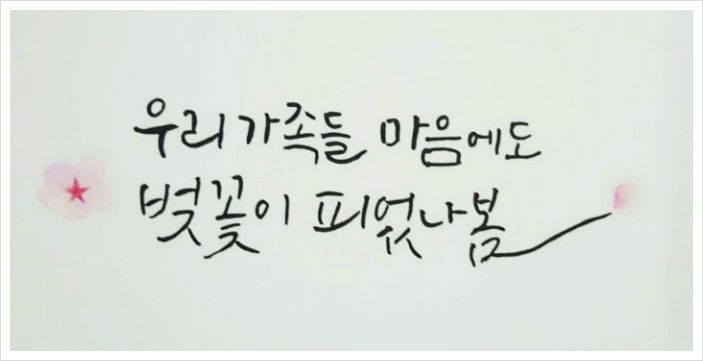 우리가족들 마음에도
벚꽃이 피었나봄